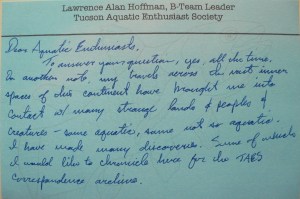 Lawrence Alan Hoffman, B-Team Leader
Tucson Aquatic Enthusiast Society
Dear Aquatic Enthusiasts,
To answer your question, yes, all the time.
In another note, my travels across the vast inner
spaces of this continent have brought me into
contact w/ many strange lands & peoples &
creatures - some aquatic, some not so aquatic.
I have made many discoveries. Some of which
I would like to chronicle here for the TAES
correspondence archive.